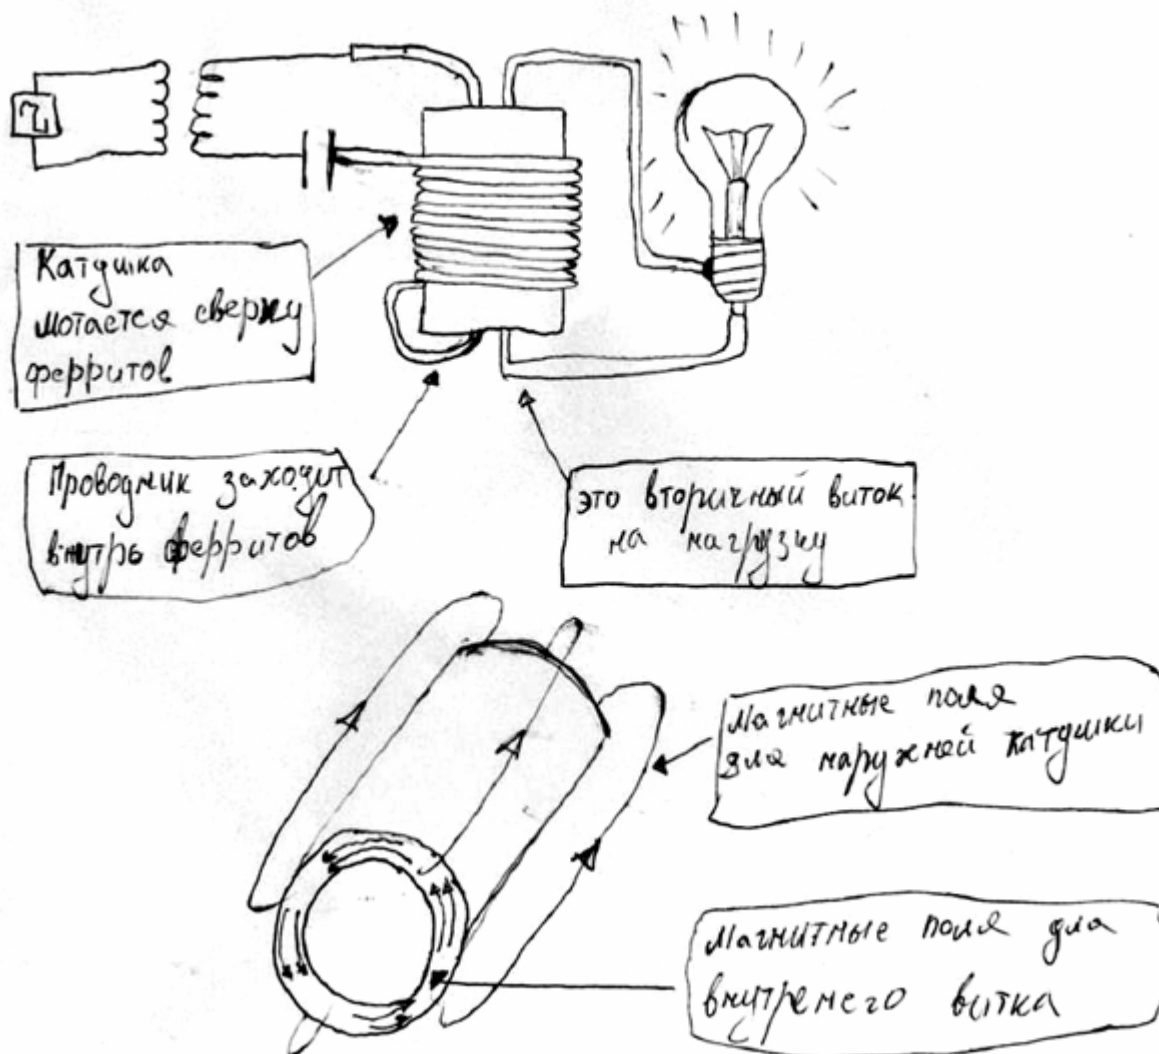 Катушка
мотается сверху
ферритов
Проводник заходит
внутрь ферритов
это вторичный виток
на нагрузку
Магнитные поля
для наружней катушки
Магнитные поля для
внутренего витка